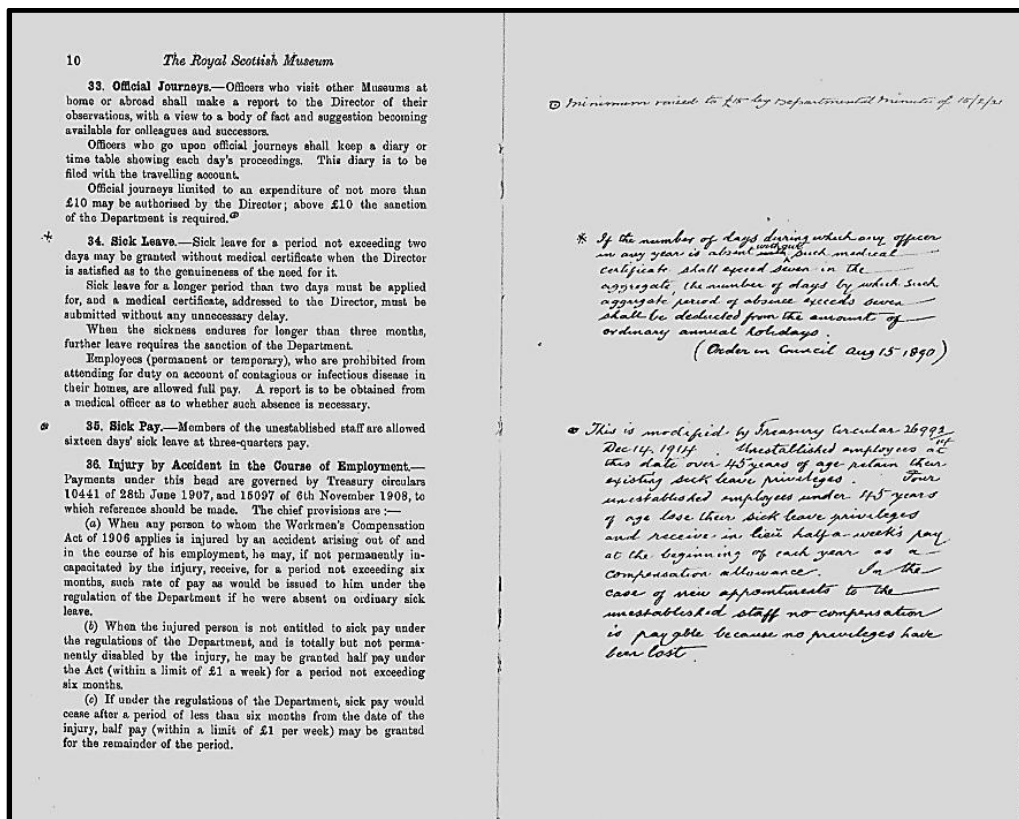 10 The Royal Scottish Museum
33. Official Journeys.—Officers who visit other Museums at
home or abroad shall make a report to the Director of their
observations, with a view to a body of fact and suggestion becoming
available for colleagues and successors.
Officers who go upon official journeys shall keep a diary or
time table showing each day's proceedings. This diary is to be
filed with the travelling account.
Official journeys limited to an expenditure of not more than
£10 may be authorised by the Director; above £10 the sanction
of the Department is required.
* 34. Sick Leave.—Sick leave for a period not exceeding two
days may be granted without medical certificate when the Director
is satisfied as to the genuineness of the need for it.
Sick leave for a longer period than two days must be applied
for, and a medical certificate, addressed to the Director, must be
submitted without any unnecessary delay.
When the sickness endures for longer than three months,
further leave requires the sanction of the Department.
Employees (permanent or temporary), who are prohibited from
attending for duty on account of contagious or infectious disease in
their homes, are allowed full pay. A report is to be obtained from
a medical officer as to whether such absence is necessary.
35. Sick Pay.—Members of the unestablished staff are allowed
sixteen days' sick leave at three-quarters pay.
36. Injury by Accident in the Course of Employment.—
Payments under this head are governed by Treasury circulars
10441 of 28th June 1907, and 15097 of 6th November 1908, to
which reference should be made. The chief provisions are :—
(a) When any person to whom the Workmen's Compensation
Act of 1906 applies is injured by an accident arising out of and
in the course of his employment, he may, if not permanently in-
capacitated by the injury, receive, for a period not exceeding six
months, such rate of pay as would be issued to him under the
regulation of the Department if he were absent on ordinary sick
leave.
(b) When the injured person is not entitled to sick pay under
the regulations of the Department, and is totally but not perma-
nently disabled by the injury, he may be granted half pay under
the Act (within a limit of £1 a week) for a period not exceeding
six months.
(c) If under the regulations of the Department, sick pay would
cease after a period of less than six months from the date of the
injury, half pay (within a limit of £1 per week) may be granted
for the remainder of the period.
Minimum raised to £15 by Departmental Minute of 15/2/21
* If the number of days during which any officer
in any year is absent without such medical
certificate shall exceed seven in the
aggregate, the number of days by which such
aggregate period of absence exceeds seven
shall be deducted from the amount of
ordinary annual holidays.
(Order in Council Aug 15 1890)
This is modified by Treasury Circular 26993/14
Dec 14. 1914. Unestablished employees at
this date over 45 years of age retain their
existing sick leave privileges. Four
unestablished employees under 45 years
of age lose their sick leave privileges
and receive in lieu half a week's pay
at the beginning of each year as a
compensation allowance. In the
case of new appointments to the
unestablished staff no compensation
is payable because no privileges have
been lost.